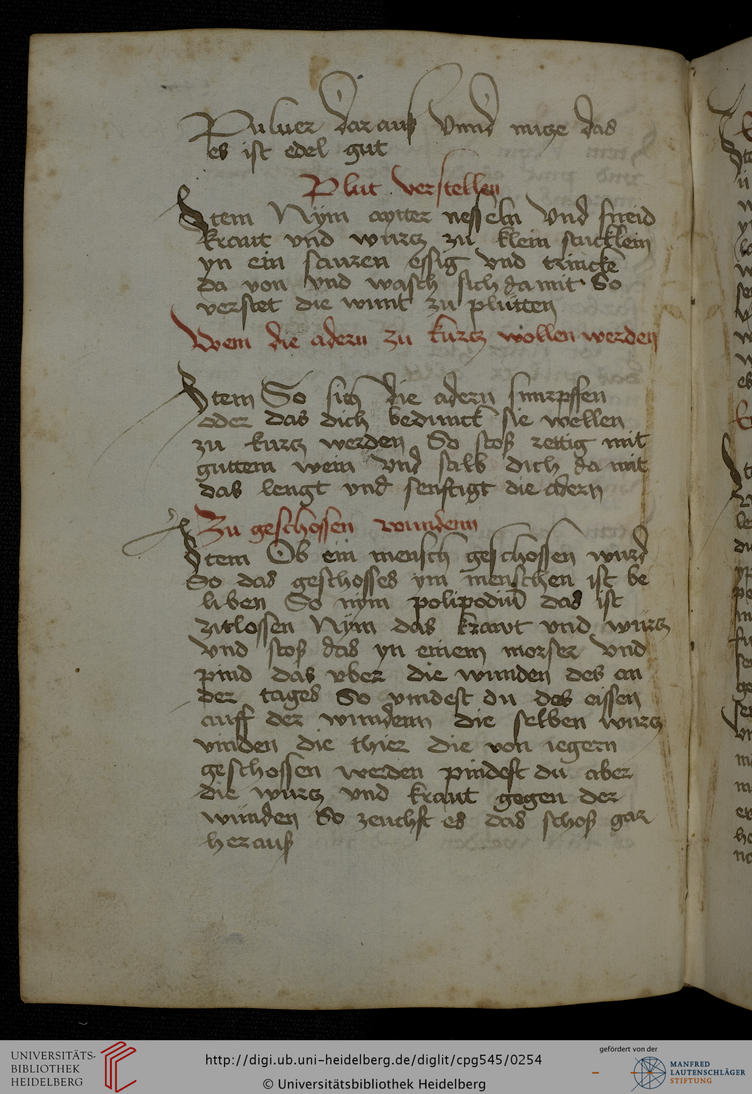 Puluer dar auß Vnnd nutze das
es ist edel gut
Plut verstellen
Item Nym aytter nesseln Vnd sneid
kraut vnd wurcz zu klein stucklein
yn ein sauren essig vnd trincke
da von vnd wasch sich da mit So
verstet die wunt zu plutten
Wem die adern zu kurcz wollen werden
Item So sich die adern smrpffen
oder das dich bedunckt sie wellen
zu kurcz werden So stoß rettig mit
guttem wein vnd salb dich da mit
das lengt vnd senftigt die adern
Zu geschossen wundenn
Item Ob ein mensch geschossen wurd
So das geschosses ym menschen ist be
liben So nym polipodiū das ist
zitlossen Nym das krawt vnd wurcz
vnd stoß das yn einem morser vnd
pind das vber die wunden des an
der tages So vindest du des eissen
auff der wundenn die selben wurcz
vinden die thier die von iegern
geschossen werden pindest du aber
die wurcz vnd kraut gegen der
wunden So zeuchst es das schoß gar
herauß
UNIVERSITÄTS-
BIBLIOTHEK
HEIDELBERG
http://digi.ub.uni-heidelberg.de/diglit/cpg545/0254
© Universitätsbibliothek Heidelberg
gefördert von der
MANFRED
LAUTENSCHLÄGER
STIFTUNG